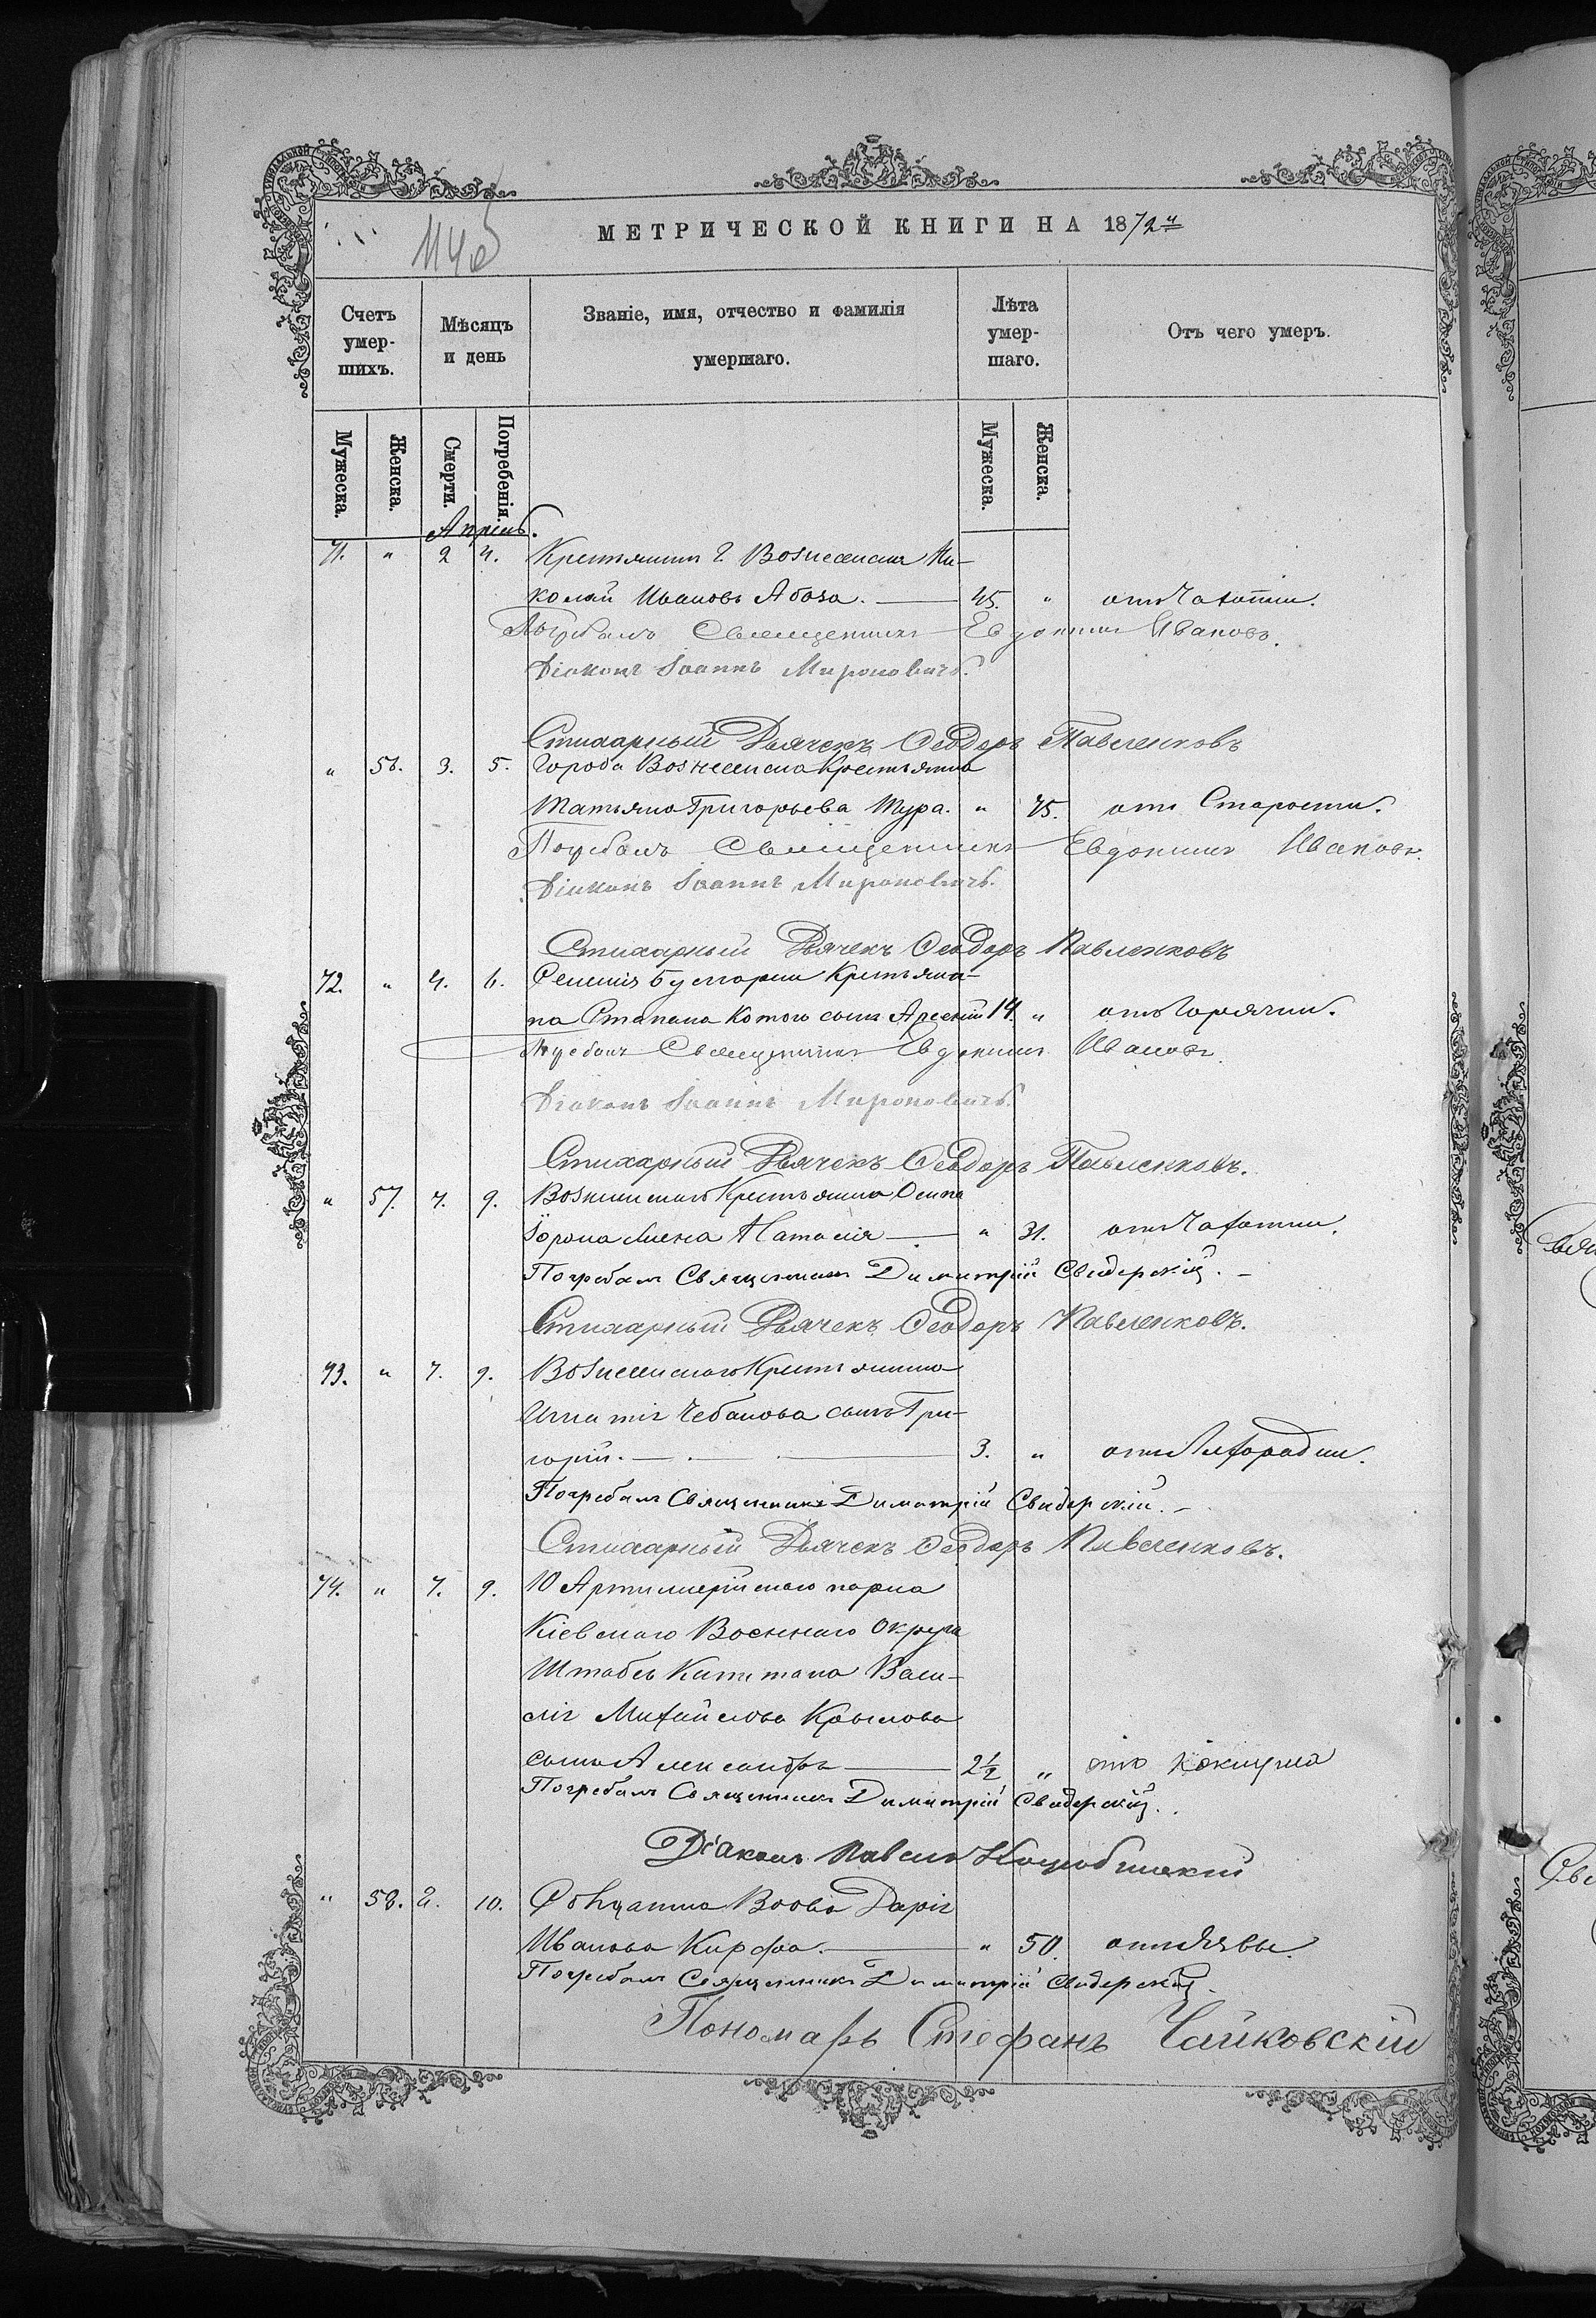 МЕТРИЧЕСКОЙ КНИГИ НА 1872й
Счетъ умер-шихъ.
Мѣсяцъ и день
Званіе, имя, отчество и фамилія умершаго.
Лѣта умер-шаго.
Отъ чего умеръ.
Мужеска.
Женска.
Смерти.
Погребенія.
Мужеска.
Женска.
Апрель.
71. " 2 4. Крестьянинъ г. Вознесенска Ни-
колай Ивановъ Абаза. 45. " отъ Чахотки.
Погребалъ Священникъ Евдокимъ Ивановъ.
Діаконъ Іоаннъ Мироновичъ.
Стихарный Дьячекъ Ѳеодоръ Павленковъ
" 56. 3. 5. Города Вознесенска Крестьянка
Татьяна Григорьева Тура. " 75. отъ Старости.
Погребалъ Священникъ Евдокимъ Ивановъ.
Діаконъ Іоаннъ Мироновичъ.
Стихарный Дьячекъ Ѳеодоръ Павленковъ
72. " 4. 6. Селенія Булгарки Крестьяни-
на Степана сынъ Арсеній 14. " отъ Горячки.
Погребалъ Священникъ Евдокимъ Ивановъ.
Діаконъ Іоаннъ Мироновичъ.
Стихарный Дьячекъ Ѳеодоръ Павленковъ.
" 57. 7. 9. Вознесенскаго Крестьянина Осипа
жена Наталія " 31. отъ Чахотки.
Погребалъ Священникъ Димитрій Свидерскій.
Стихарный Дьячекъ Ѳеодоръ Павленковъ.
73. " 7. 9. Вознесенскаго Крестьянина
Игнатія Чебанова сынъ Гри-
горій. 3. " отъ Лихорадки.
Погребалъ Священникъ Димитрій Свидерскій.
Стихарный Дьячекъ Ѳеодоръ Павленковъ.
74. " 7. 9. 10 Артиллерійскаго парка
Кіевскаго Военнаго Округа
Штабсъ Капитана Васи-
лія Михайлова Крылова
сынъ Александръ 2½ " отъ Коклуша
Погребалъ Священникъ Димитрій Свидерскій.
Діаконъ Павелъ
" 58. 10. Мѣщанка Вдова Дарія
Иванова " 50. отъ Язвы.
Погребалъ Священникъ Димитрій Свидерскій.
Пономарь Стефанъ Чайковскій